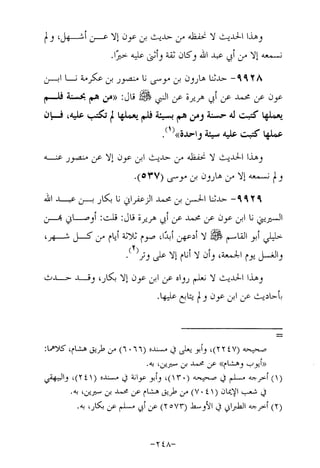 وهذا الحديث لا نحفظه من حديث بن عون إلا عـــن أشـــهل، و لم
نسمعه إلا من أبي عبد الله وكان ثقة وأثنى عليه خيرًا.
٩٩٢٨- حدثنا هارون بن موسى نا منصور بن عكرمة نـــا ابـــن
عون عن محمد عن أبي هريرة عن النبي ﷺ قال: «من هم بحسنة فلـــم
يعملها كتبت له حسنة ومن هم بسيئة فلم يعملها لم تكتب عليه، فـــإن
عملها كتبت عليه سيئة واحدة»(١).
وهذا الحديث لا نحفظه من حديث ابن عون إلا عن منصور عنـــه
و لم نسمعه إلا من هارون بن موسى (٥٣٧).
٩٩٢٩- حدثنا الحسن بن محمد الزعفراني نا بكار بـــن عبـــد الله
السيريني نا ابن عون عن محمد عن أبي هريرة قال: قلت: أوصـــاني بهـــن
خليلي أبو القاسم ﷺ لا أدعهن أبدًا، صوم ثلاثة أيام من كـــل شـــهر،
والغسل يوم الجمعة، وأن لا أنام إلا على وتر(٢).
وهذا الحديث لا نعلم رواه عن ابن عون إلا بكار، وقـــد حـــدث
بأحاديث عن ابن عون و لم يتابع عليها.
=
صحيحه (٢٢٤٧)، وأبو يعلى في مسنده (٦٠٦٦) من طريق هشام، كلاهما:
«أيوب وهشام» عن محمد بن سيرين، به.
(١) أخرجه مسلم في صحيحه (١٣٠)، وأبو عوانة في مسنده (٢٤١)، والبيهقي
في شعب الإيمان (٧٠٤١) من طريق هشام عن محمد بن سيرين، به.
(٢) أخرجه الطبراني في الأوسط (٢٥٧٣) عن أبي مسلم عن بكار، به.
-٢٤٨-